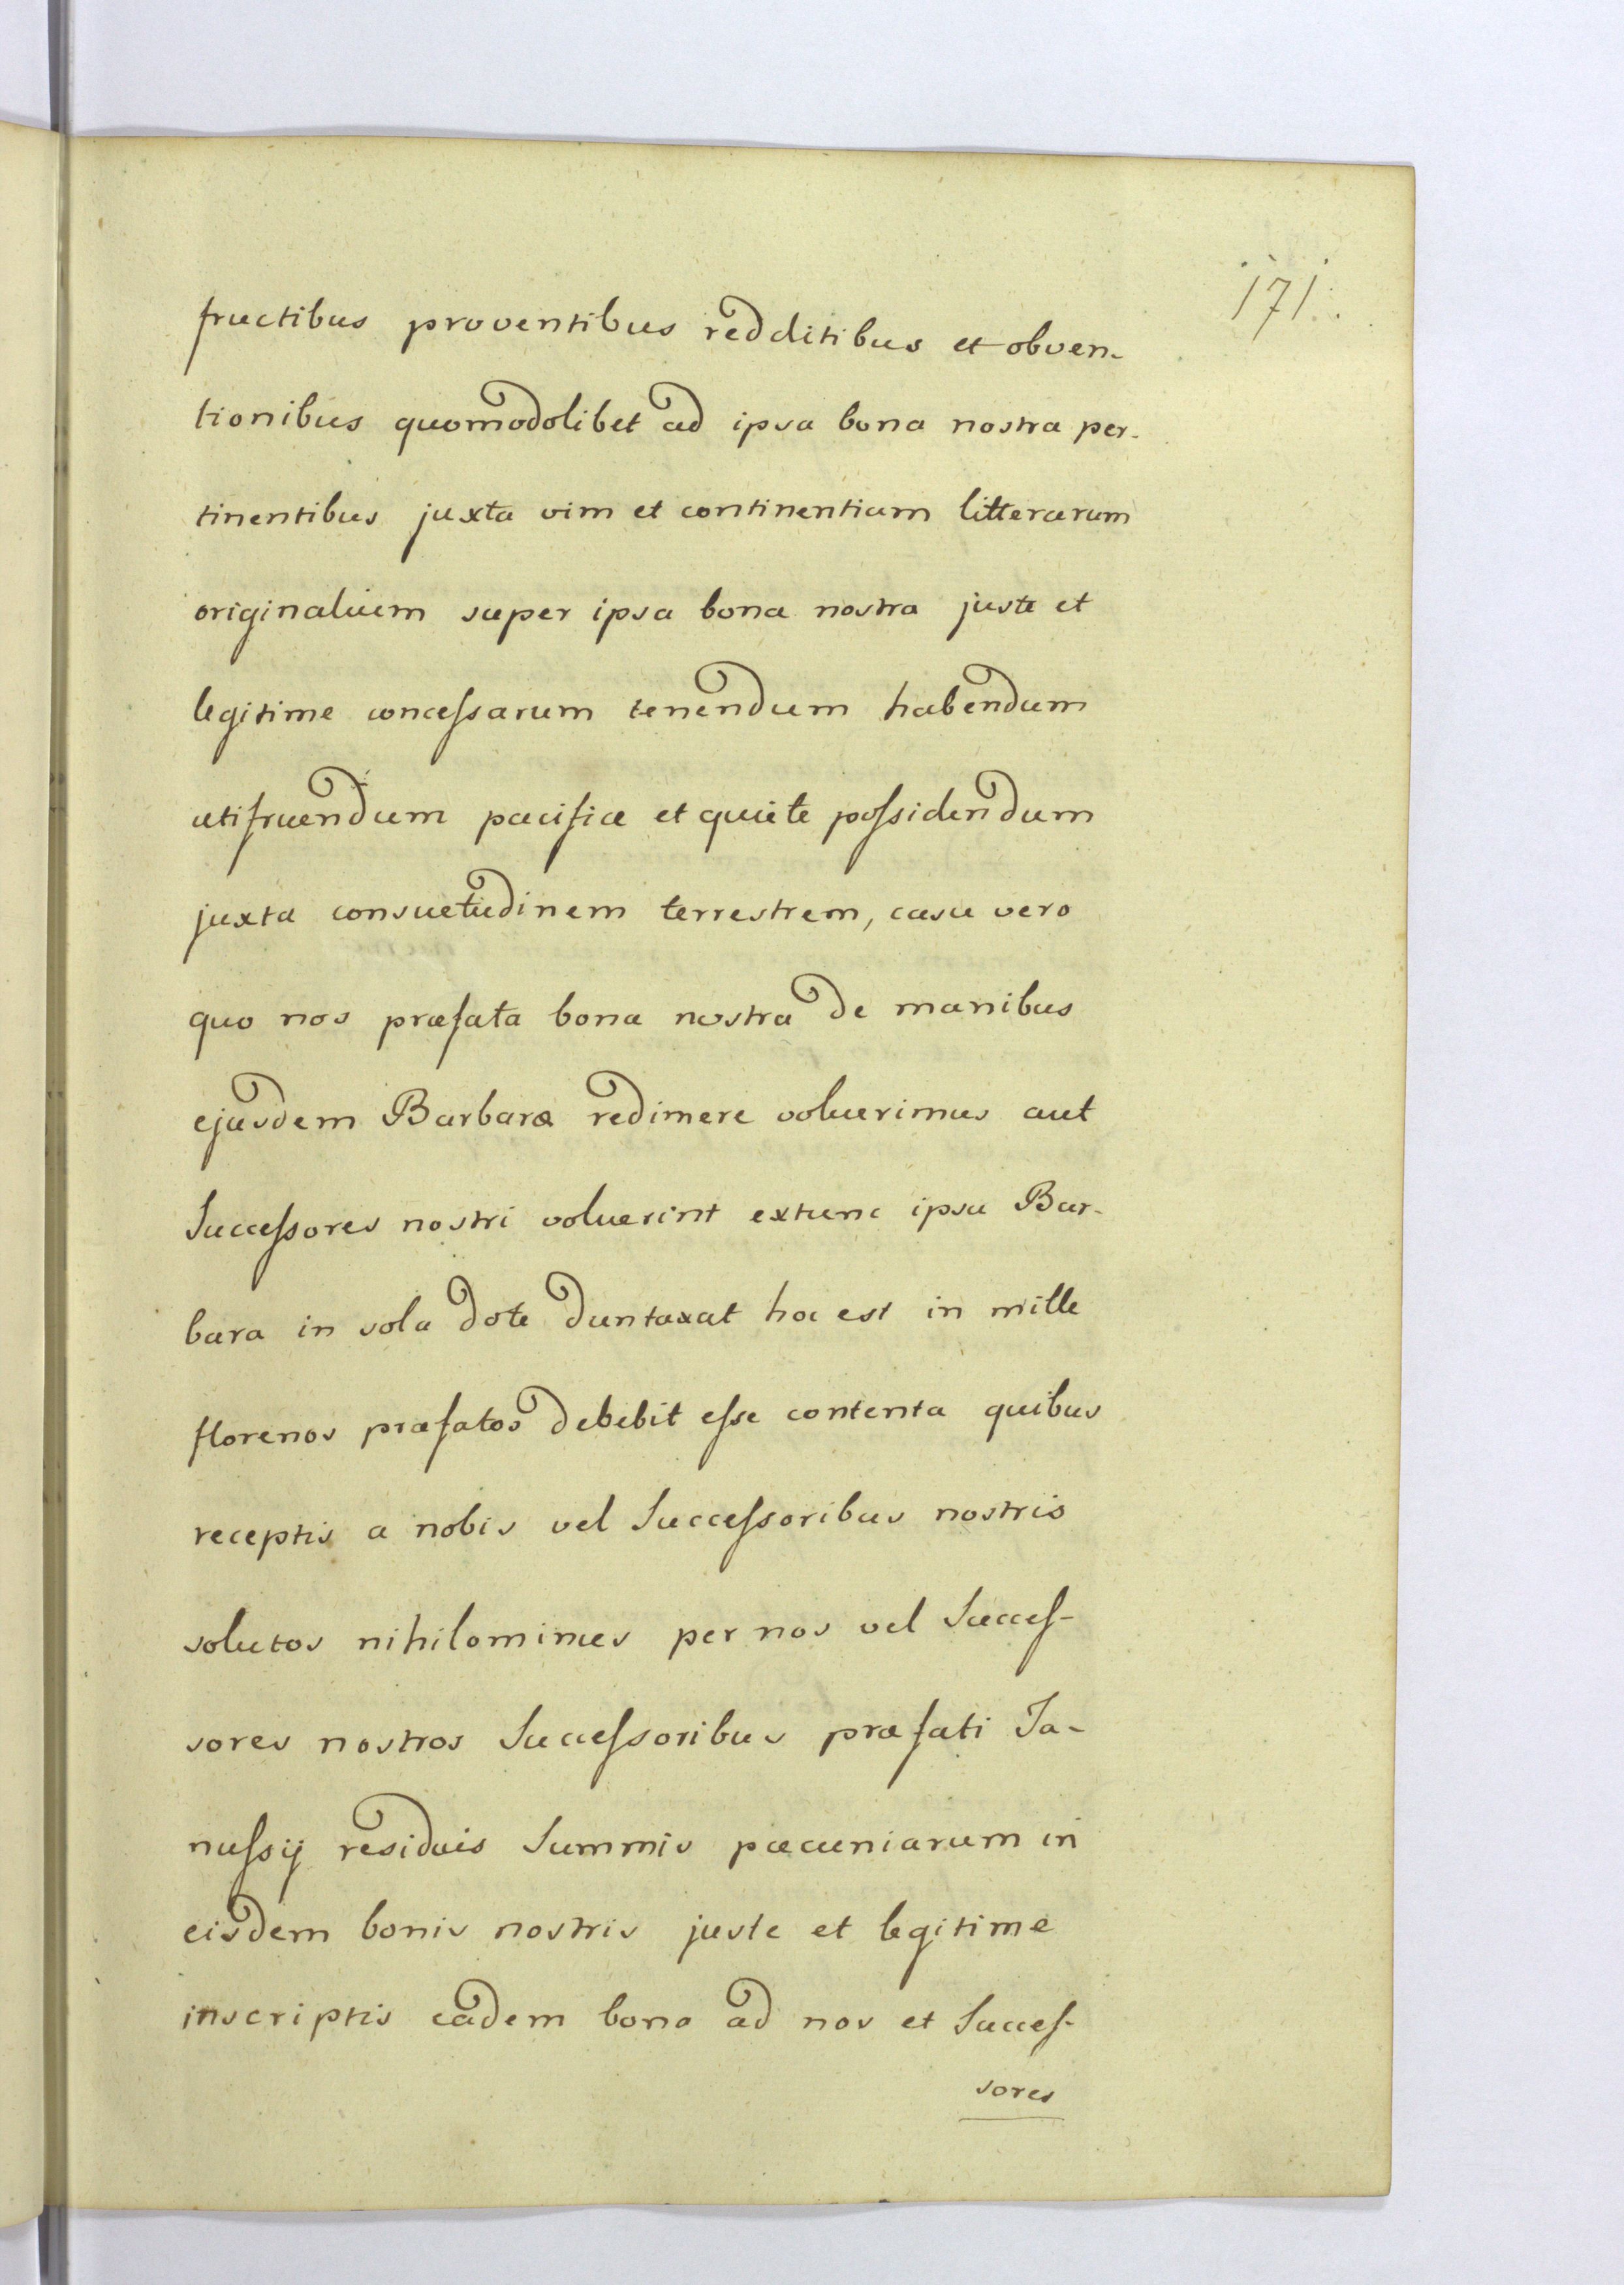 171.
fructibus proventibus redditibus et obven-
tionibus quomodolibet ad ipsa bona nostra per-
tinentibus juxta vim et continentiam litterarum
originalium super ipsa bona nostra juste et
legitime conceſsarum tenendum habendum
utifruendum pacifice et quiete poſsidendum
juxta consuetudinem terrestrem, casu vero
quo nos præfata bona nostra de manibus
ejusdem Barbaræ redimere voluerimus aut
Succeſsores nostri voluerint extunc ipsa Bar-
bara in sola dote duntaxat hoc est in mille
florenos præfatos debebit eſse contenta quibus
receptis a nobis vel Succeſsoribus nostris
solutos nihilominus per nos vel Succeſ-
sores nostros Succeſsoribus præfati Ja-
nuſsij residuis Summis pæcuniarum in
eisdem bonis nostris juste et legitime
inscriptis eadem bona ad nos et Succeſ-
sores